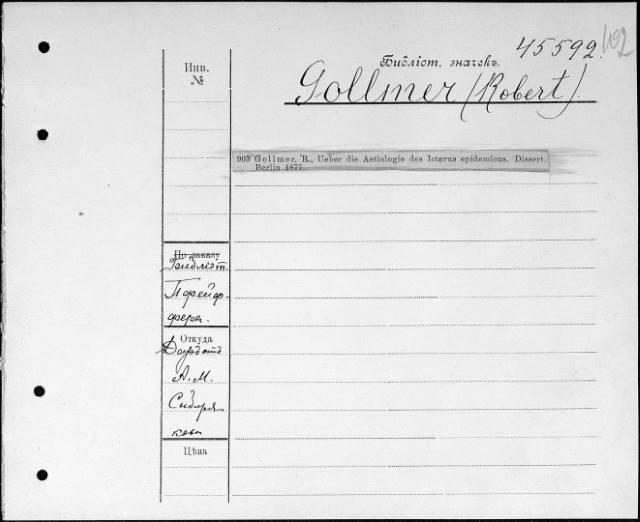 45592.
102
Библіот. значекъ.
Gollmer (Robert).
Инв.
№
903 Gollmer, R., Ueber die Aetiologie des Icterus epidemicus. Dissert.
Berlin 1877.
По заказу
Библіот.
Пфейф-
фера.
Откуда
А. М.
Сибиря
кова
Цѣна